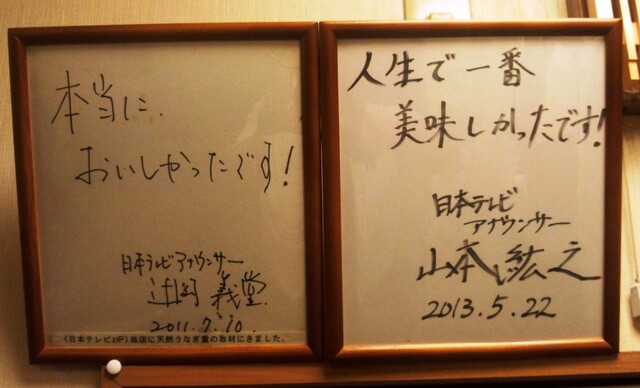 本当に.
おいしかったです!
日本テレビアナウンサー
辻岡 義堂.
2011.7.10.
(日本テレビZIP)当店に天然うなぎ重の取材にきました。
人生で一番
美味しかったです!
日本テレビ
アナウンサー
山本紘之
2013.5.22